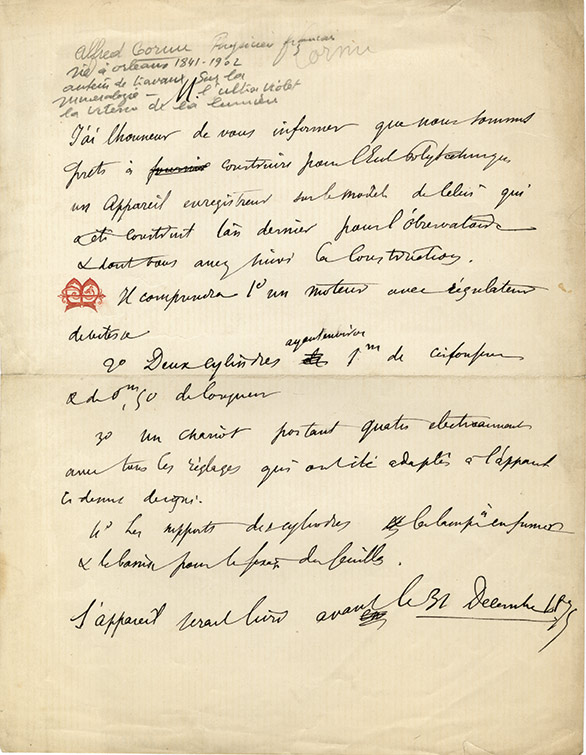 Alfred Cornu Physicien français
Cornu
né à Orléans 1841-1902
auteur de travaux sur la
mineralogie - l'ultra violet
la vitesse de la lumière
J'ai l'honneur de vous informer que nous sommes
prets à fournir construire pour l'Ecole Polytechnique
un Appareil enregistreur sur le modele de celui qui
a été construit l'an dernier pour l'Observatoire
& dont vous avez suivi la Construction.
Il comprendra 1° un moteur avec régulateur
de vitesse
2° Deux cylindres ayant environ 1m de circonférence
& de 0m,50 de longueur
3° un chariot portant quatre electroaimants
avec tous les réglages qui ont été adaptés à l'appareil
ci dessus designé.
4° Les supports des cylindres la lampe à enfumer
& le bassin pour le fixage des feuilles.
L'appareil serait livré avant le 31 Decembre